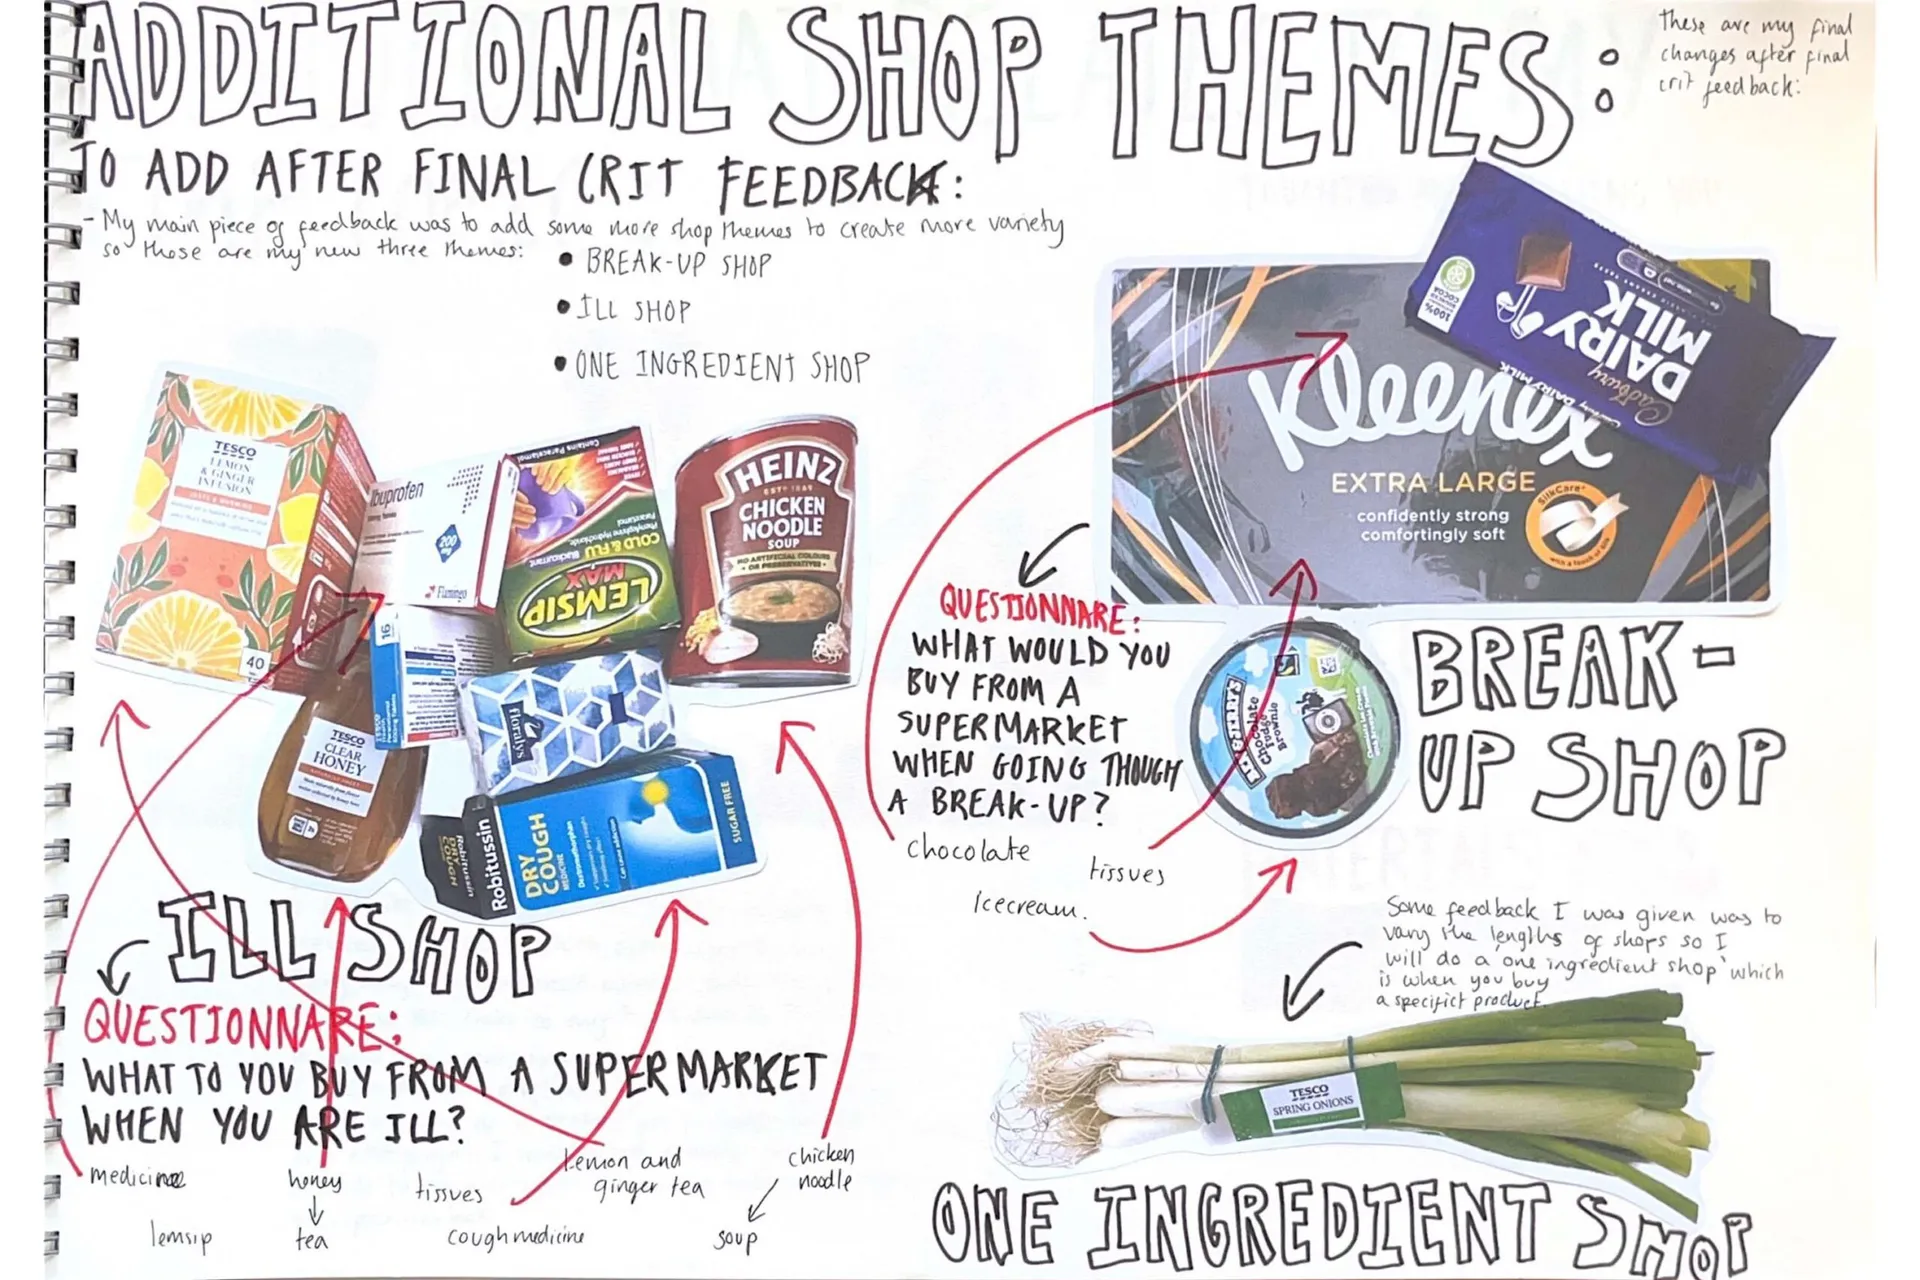 ADDITIONAL SHOP THEMES:
these are my final
changes after final
crit feedback:
TO ADD AFTER FINAL CRIT FEEDBACK:
- My main piece of feedback was to add some more shop themes to create more variety
so these are my new three themes:
• BREAK-UP SHOP
• ILL SHOP
• ONE INGREDIENT SHOP
TESCO
LEMON
& GINGER
INFUSION
40
Ibuprofen
200
mg
Flamingo
16
Contains Paracetamol
COLD & FLU
Blackcurrant
LEMSIP
MAX
HEINZ
ESTD 1869
CHICKEN
NOODLE
SOUP
NO ARTIFICIAL COLOURS
• OR PRESERVATIVES •
TESCO
CLEAR
HONEY
Floralys
Robitussin
DRY COUGH
Robitussin
DRY
COUGH
MEDICINE
Dextromethorphan
SUGAR FREE
ILL SHOP
QUESTIONNARE:
WHAT TO YOU BUY FROM A SUPERMARKET
WHEN YOU ARE ILL?
medicine
honey
tissues
lemon and
ginger tea
chicken
noodle
lemsip
tea
cough medicine
soup
100%
COCOA
Cadbury
DAIRY
MILK
Cadbury DAIRY MILK
Kleenex
EXTRA LARGE
confidently strong
comfortingly soft
SilkCare
QUESTIONNARE:
WHAT WOULD YOU
BUY FROM A
SUPERMARKET
WHEN GOING THOUGH
A BREAK-UP?
chocolate
tissues
icecream.
Chocolate
Fudge
Brownie
BREAK-
UP SHOP
Some feedback I was given was to
vary the lengths of shops so I
will do a 'one ingredient shop' which
is when you buy
a specifict product.
TESCO
SPRING ONIONS
ONE INGREDIENT SHOP